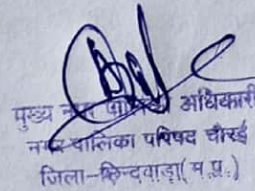 मुख्य नगर पालिका अधिकारी
नगर पालिका परिषद चौरई
जिला-छिन्दवाड़ा(म.प्र.)